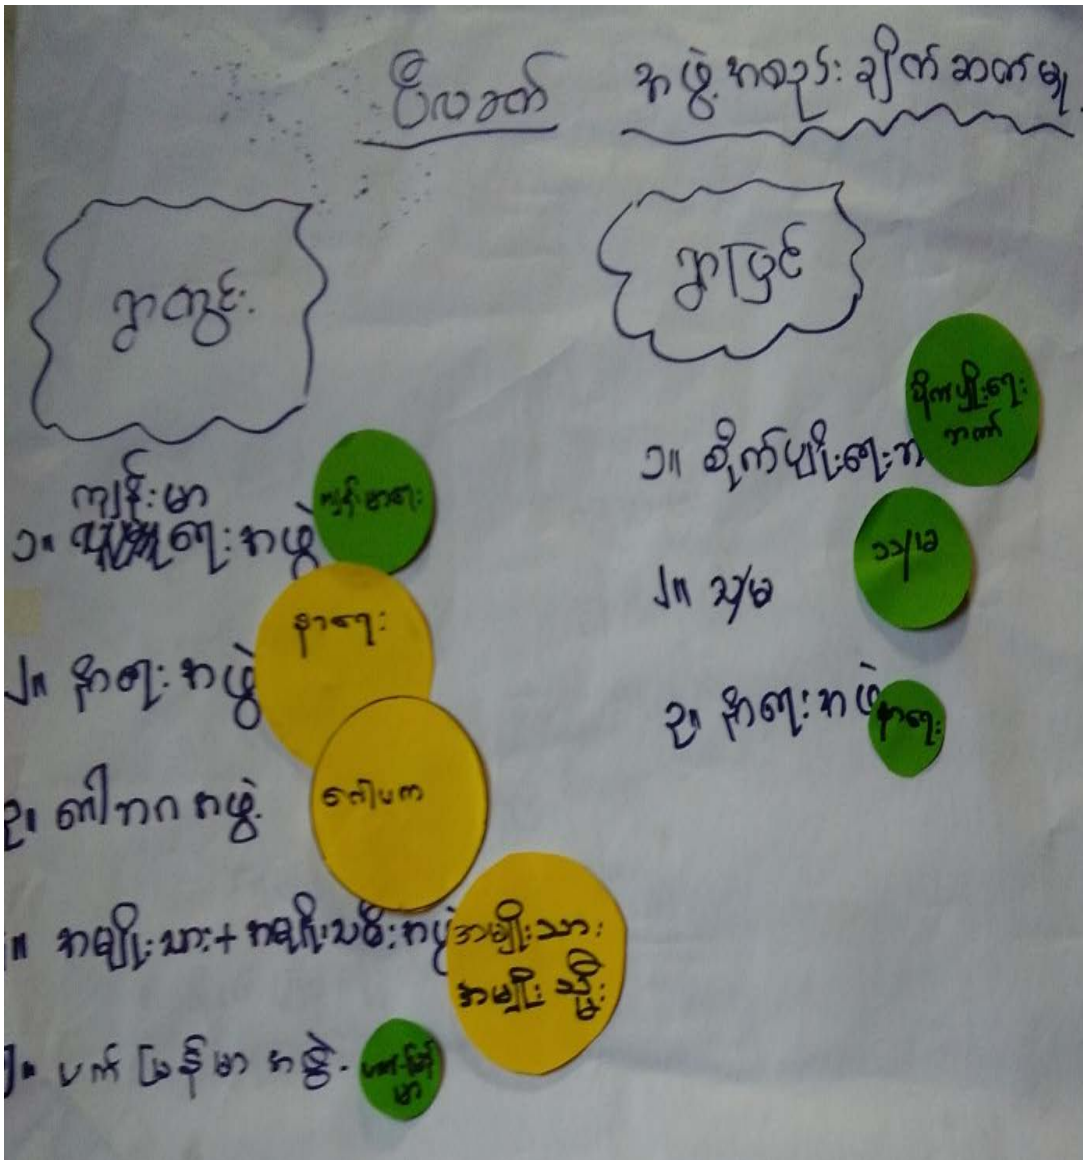 ပီလခတ် အဖွဲ့အစည်းချိတ်ဆက်မှု
ရွာတွင်း
ရွာပြင်
ကျန်းမာ
၁။ ရေးအဖွဲ့
ကျန်းမာရေး
၂။ နာရေးအဖွဲ့
နာရေး
၃။ ဂေါပကအဖွဲ့
ဂေါပက
၄။ အမျိုးသား+အမျိုးသမီးအဖွဲ့
အမျိုးသား
အမျိုးသမီး
၅။ ပတ်မြန်မာအဖွဲ့
မာ
၁။ စိုက်ပျိုးရေး
စိုက်ပျိုးရေး
ဘဏ်
၂။ သ/မ
သ/မ
၃။ နာရေးအဖွဲ့
နာရေး